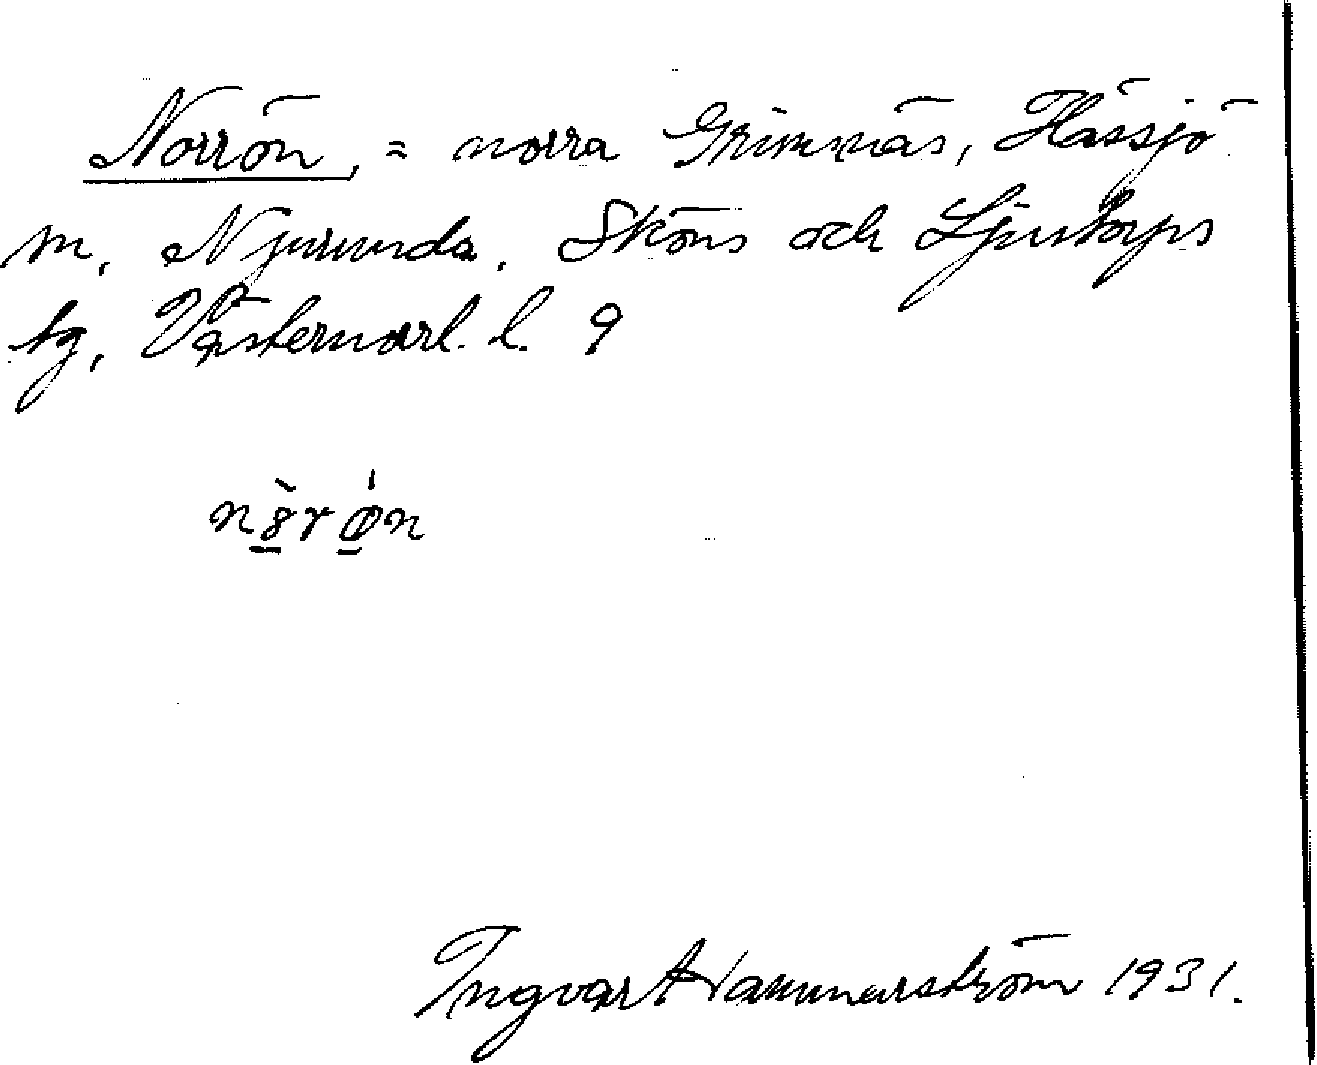 Norrön, = norra Grimnäs, Hässjö
m. Njurunda, Sköns och Ljustorps
tg, Västernorrl. l. 9
Ingvar Hammarström 1931.